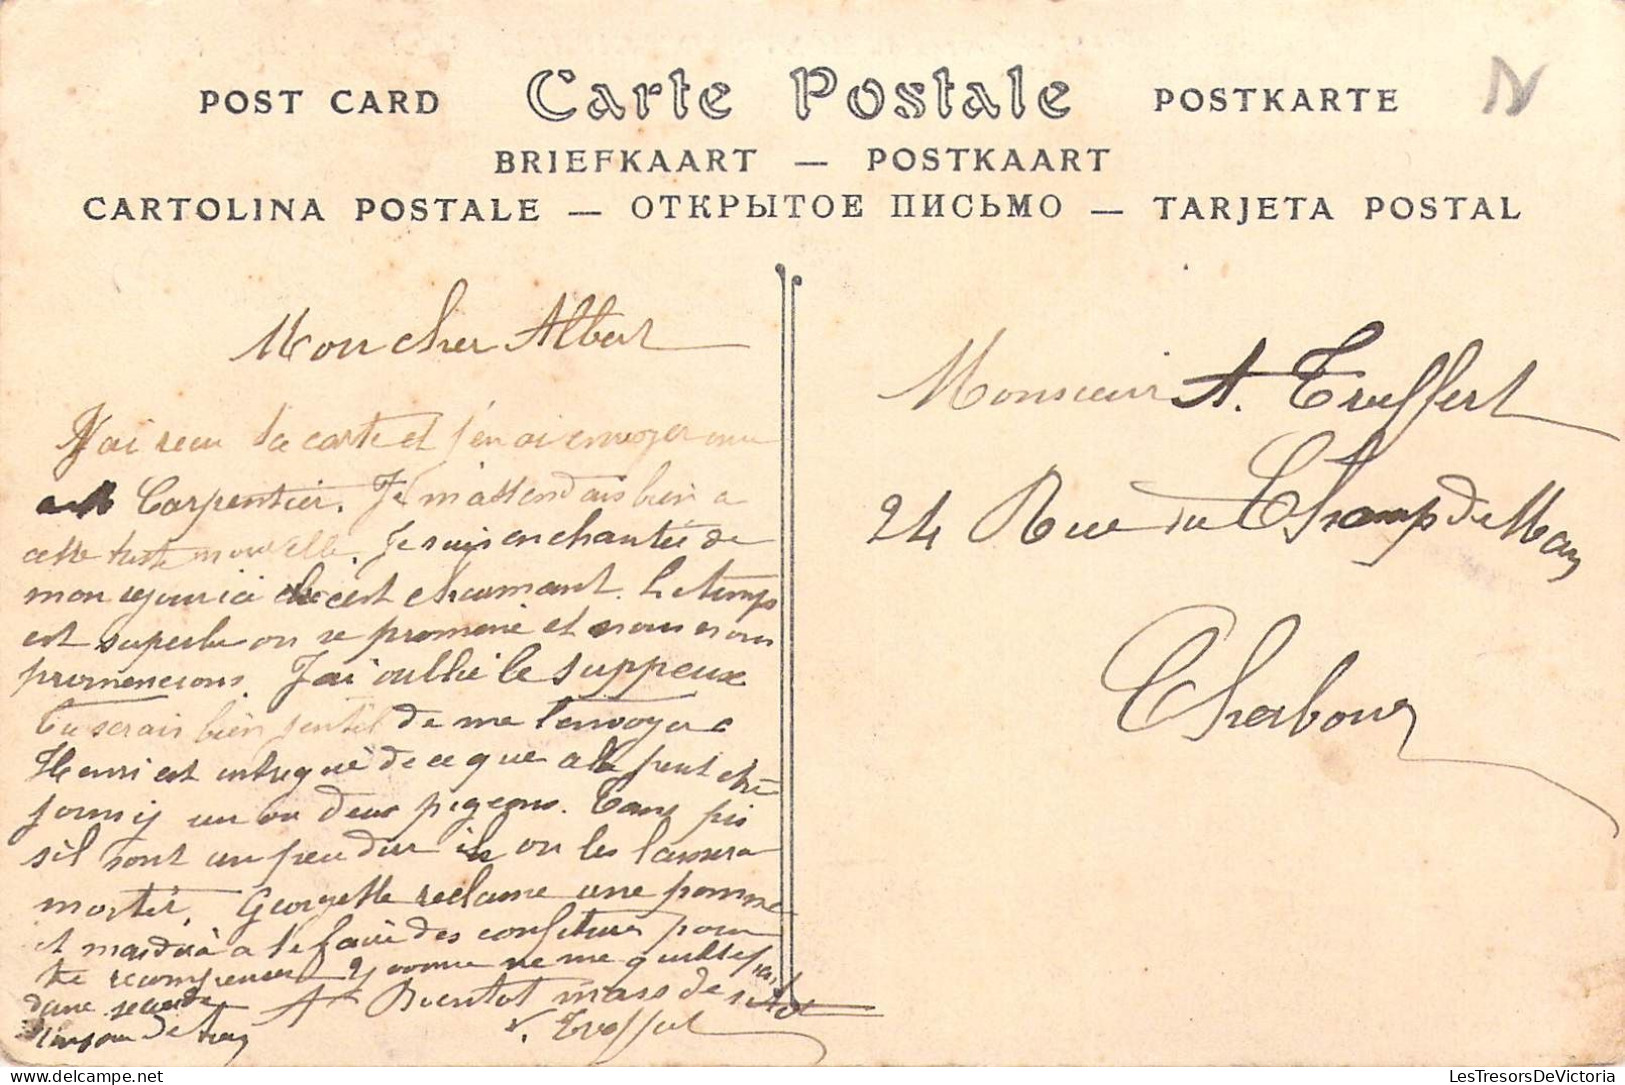 POST CARD Carte Postale POSTKARTE
BRIEFKAART — POSTKAART
CARTOLINA POSTALE — ОТКРЫТОЕ ПИСЬМО — TARJETA POSTAL
Mon cher Albert
J'ai recu ta carte et j'en ai envoyer une
Carpentier. Je m'attendais bien a
cette triste nouvelle. Je suis enchantée de
mon sejour ici c'est charmant. Le temps
est superbe on se promene et nous nous
promenerons. J'ai oublié le suppeux
Tu serais bien gentil de me l'envoyer
Henri est intrigué de ce que a peut etre
un ou deux pigeons. Tant pis
s'il sont un peu dur on les laissera
Georgette reclame une pomme
et a te faire des confitures pour
te recompenser ne me
dune seconde A Bientot de
Treffert
Monsieur A. Treffert
24 Rue du Champ de Mars
Cherbourg
LesTresorsDeVictoria
LesTresorsDeVictoria